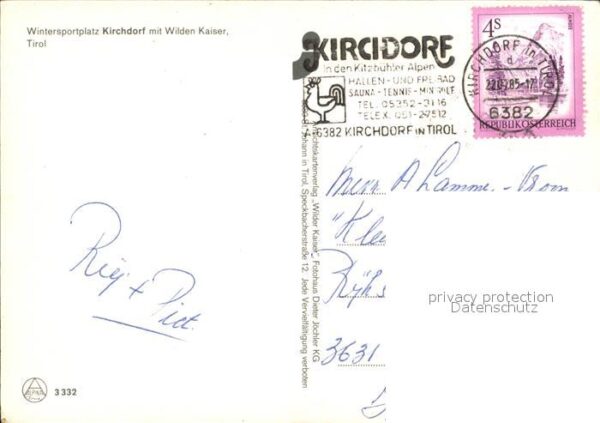 Wintersportplatz Kirchdorf mit Wilden Kaiser,
Tirol
KIRCHDORF
in den Kitzbühler Alpen
HALLEN- UND FREIBAD
SAUNA - TENNIS - MINIGOLF
TEL. 05352-3116
TELEX. 051-27512
A-6382 KIRCHDORF IN TIROL
4S
REPUBLIK ÖSTERREICH
KIRCHDORF in TIROL
d
6382
Ansichtskartenverlag „Wilder Kaiser", Fotohaus Dieter Jöchler KG
Johann in Tirol, Speckbacherstraße 12. Jede Vervielfältigung verboten
A Lamme
"Kle
Rijks
3631
privacy protection
Datenschutz
+ Piet.
3 332